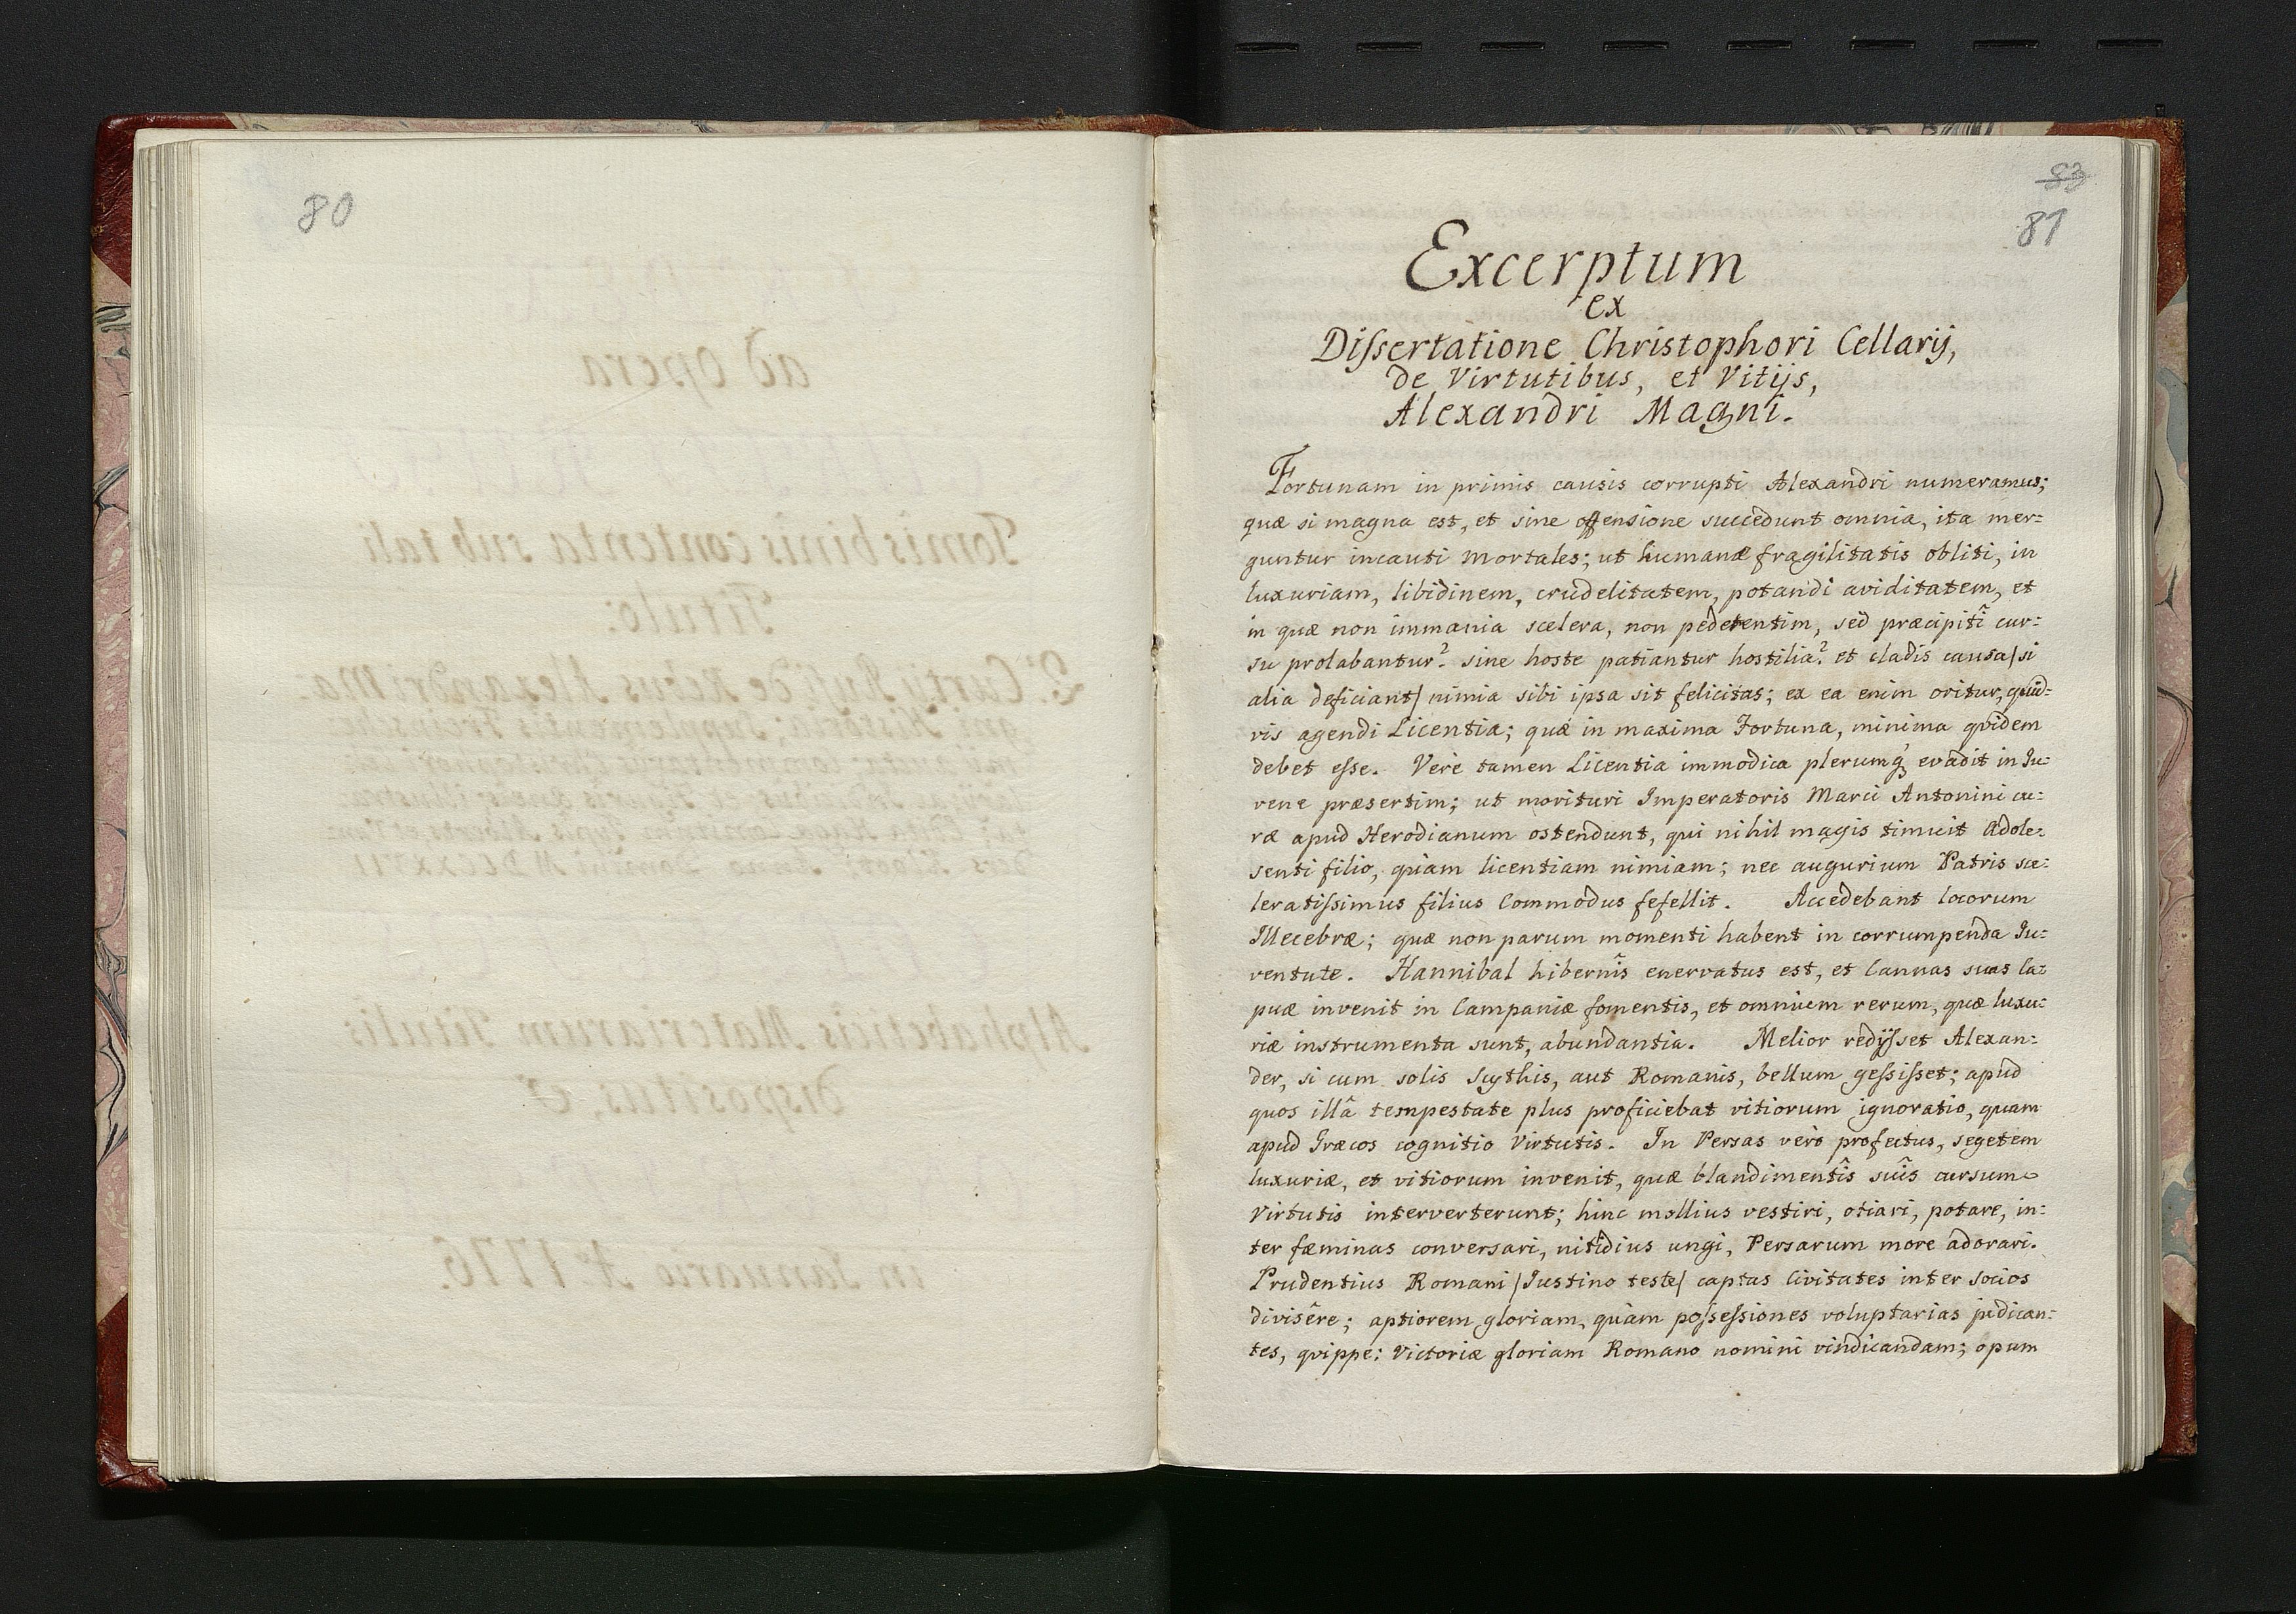 80
83
81
Excerptum
ex
Dissertatione Christophori Cellarij,
de Virtutibus, et Vitijs,
Alexandri Magni.
Fortunam in primis causis corrupti Alexandri numeramus;
quæ si magna est, et sine offensione succedunt omnia, ita mer=
guntur incauti mortales; ut humanæ fragilitatis obliti, in
luxuriam, libidinem, crudelitatem, potandi aviditatem, et
in quæ non immania scelera, non pedetentim, sed præcipitî cur=
su prolabantur? sine hoste patiantur hostilia? et cladis causa/si
alia deficiant/ nimia sibi ipsa sit felicitas; ex ea enim oritur, quid=
vis agendi Licentia; quæ in maxima Fortuna, minima qvidem
debet esse. Verè tamen Licentia immodica plerumq; evadit in Ju=
vene præsertim; ut morituri Imperatoris Marci Antonini cu=
ræ apud Herodianum ostendunt, qui nihil magis timuit Adole=
senti filio, quàm licentiam nimiam; nec augurium Patris sce=
leratissimus filius Commodus fefellit. Accedebant locorum
Illecebræ; quæ non parum momenti habent in corrumpenda Ju=
ventute. Hannibal hibernîs enervatus est, et Cannas suas Ca=
puæ invenit in Campaniæ fomentis, et omnium rerum, quæ luxu=
riæ instrumenta sunt, abundantia. Melior redijsset Alexan=
der, si cum solis Scythis, aut Romanis, bellum gessisset; apud
quos illâ tempestate plus proficiebat vitiorum ignoratio, quam
apud Græcos cognitio Virtutis. In Persas verò profectus, segetem
luxuriæ, et vitiorum invenit, quæ blandimentîs suîs cursum
Virtutis interverterunt; hinc mollius vestiri, otiari, potare, in=
ter fæminas conversari, nitidius ungi, Persarum more adorari.
Prudentius Romani /Justino teste/ captas Civitates inter socios
divisêre; aptiorem gloriam, quàm possessiones voluptarias judican=
tes, qvippe: Victoriæ gloriam Romano nomini vindicandam; opum